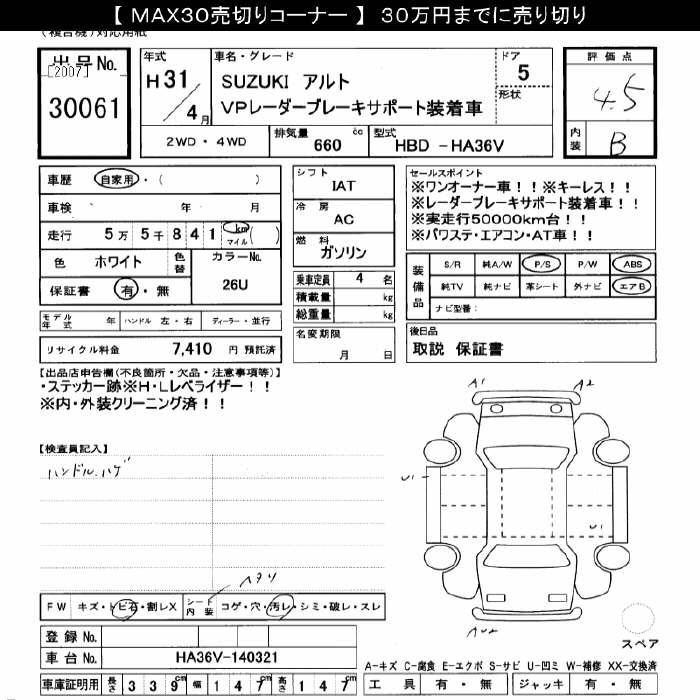 【 MAX30売切りコーナー 】 30万円までに売り切り
(複合機)対応用紙
出品No.
[2007]
30061
年式
H 31
/ 4月
車名・グレード
SUZUKI アルト
VPレーダーブレーキサポート装着車
ドア
5
形状
評価点
4.5
内装
B
2WD・4WD
排気量
660
cc
型式
HBD －HA36V
車歴 自家用・( )
車検 年 月
走行 5万 5千 8 4 1 km マイル ( )
色 ホワイト 色替 カラーNo.
26U
保証書 有・無
モデル年式 年 ハンドル 左・右 ディーラー・並行
リサイクル料金 7,410 円 預託済
シフト
IAT
冷房
AC
燃料
ガソリン
乗車定員 4 名
積載量 kg
総重量 kg
名変期限
月 日
セールスポイント
※ワンオーナー車！！※キーレス！！
※レーダーブレーキサポート装着車！！
※実走行50000km台！！
※パワステ・エアコン・AT車！！
装備品
S/R 純A/W P/S P/W ABS
純TV 純ナビ 革シート 外ナビ エアB
ナビ型番:
後日品
取説 保証書
【出品店申告欄(不良箇所・欠品・注意事項等)】
・ステッカー跡※H・Lレベライザー！！
※内・外装クリーニング済！！
【検査員記入】
ハンドルハゲ
A1
A2
U1
U1
ヘタリ
FW キズ・トビ石・割レX シート内装 コゲ・穴・汚レ・シミ・破レ・スレ
登録No.
車台No. HA36V-140321
車庫証明用 長さ 3 3 9 cm 幅 1 4 7 cm 高さ 1 4 7 cm
スペア
A-キズ C-腐食 E-エクボ S-サビ U-凹ミ W-補修 XX-交換済
工具 有・無 ジャッキ 有・無